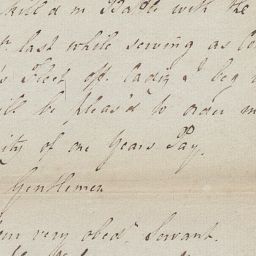 kill'd in Battle with the
last while serving as
Fleet off Cadiz I beg
will be pleas'd to order m
ity of one Years Pay.
Gentlemen
very obed.t Servant.